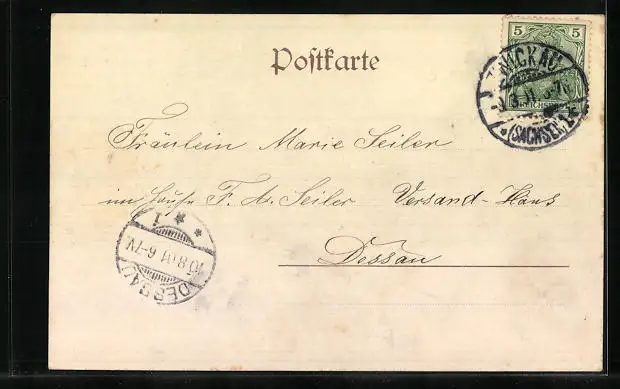 5 5
Postkarte
ZWICKAU
(SACHSEN)
Fräulein Marie Seiler
im Hause F. A. Seiler Versand-Haus
Dessau
1
10.8.01.6-7V.
DESSAU